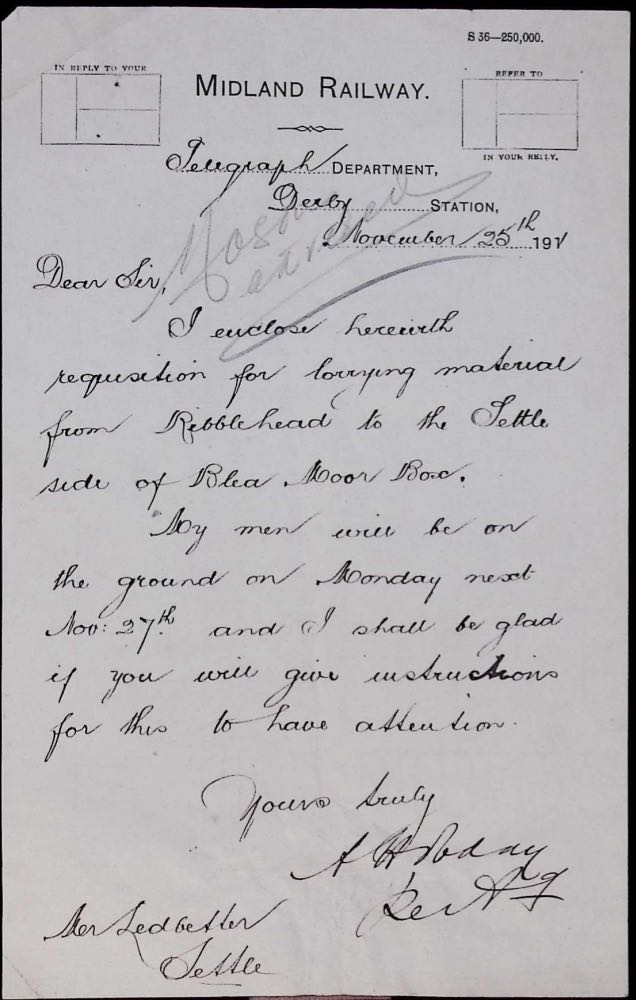 S 36—250,000.
IN REPLY TO YOUR
REFER TO
MIDLAND RAILWAY.
IN YOUR REPLY.
Telegraph DEPARTMENT,
Derby STATION,
November 25th 1911
Dear Sir,
I enclose herewith
requisition for lorrying material
from Ribblehead to the Settle
side of Blea Moor Box.
My men will be on
the ground on Monday next
Nov: 27th. and I shall be glad
if you will give instructions
for this to have attention.
Yours truly
A H
Per
Mr Ledbetter
Settle